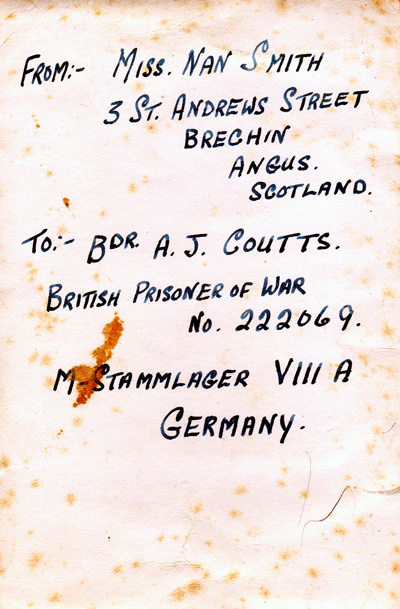 FROM:- MISS. NAN SMITH
3 ST. ANDREWS STREET
BRECHIN
ANGUS.
SCOTLAND.
TO:- BDR. A. J. COUTTS.
BRITISH PRISONER OF WAR
NO. 222069.
M-STAMMLAGER VIII A
GERMANY.